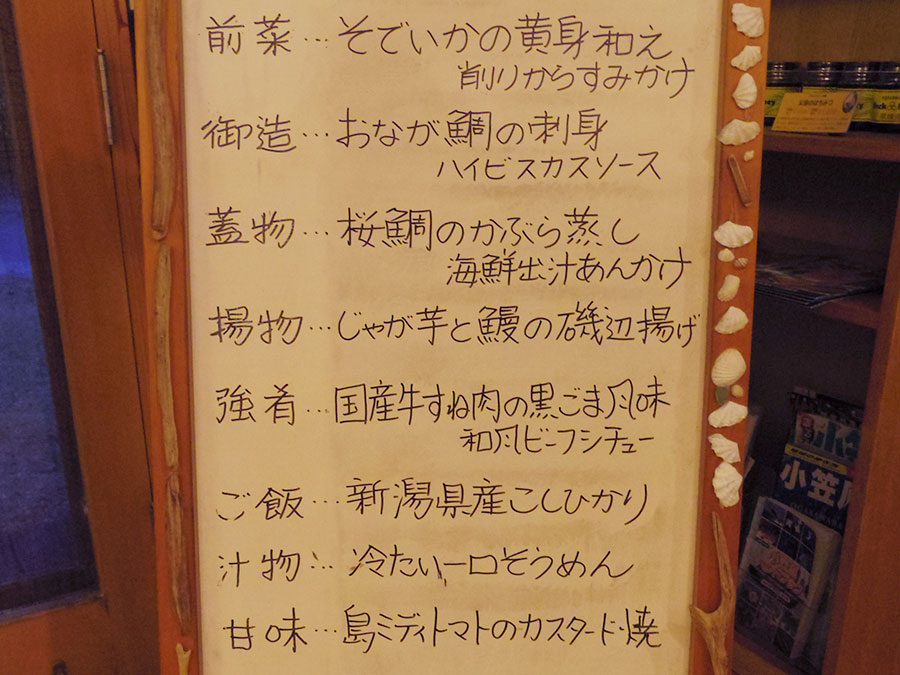 前菜…そでいかの黄身和え
削りからすみかけ
御造…おなが鯛の刺身
ハイビスカスソース
蓋物…桜鯛のかぶら蒸し
海鮮出汁あんかけ
揚物…じゃが芋と鰻の磯辺揚げ
強肴…国産牛すね肉の黒ごま風味
和風ビーフシチュー
ご飯…新潟県産こしひかり
汁物…冷たい一口そうめん
甘味…島ミディトマトのカスタード焼
小笠